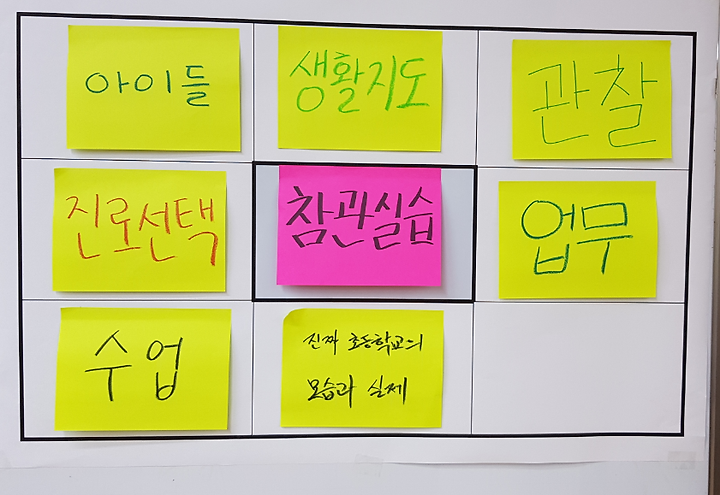 아이들
생활지도
관찰
진로선택
참관실습
업무
수업
진짜 초등학교의
모습과 실제